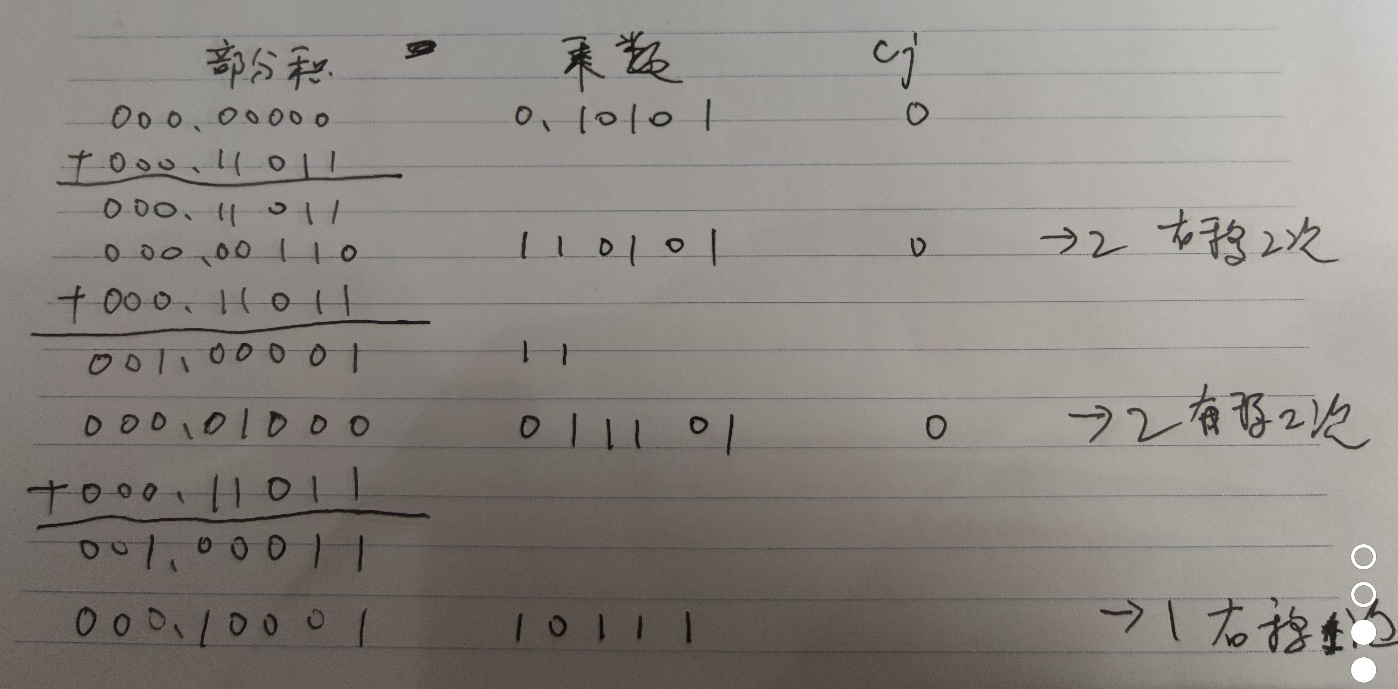 部分积 乘数 Cj
000.00000 0.10101 0
+000.11011
000.11011
000.00110 110101 0 →2 右移2次
+000.11011
001.00001 11
000.01000 011101 0 →2 右移2次
+000.11011
001.00011
000.10001 10111 →1 右移1次